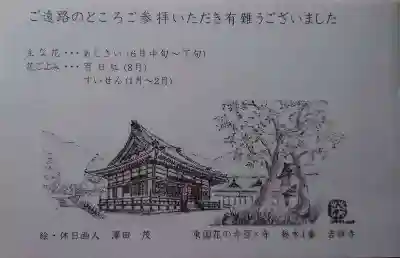 ご遠路のところご参拝いただき有難うございました
主な花・・・あじさい(6月中旬〜下旬)
花ごよみ・・・百日紅(8月)
すいせん(1月〜2月)
絵・休日画人 澤田 茂
東国花の寺百ヶ寺 栃木1番 吉祥寺